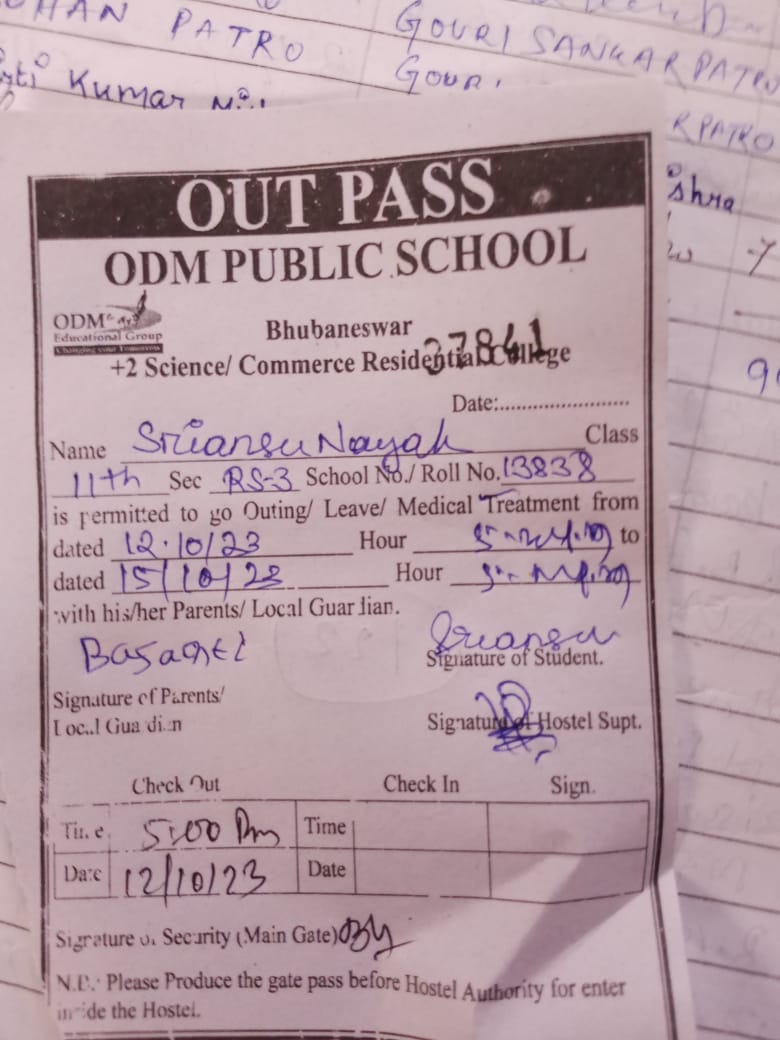 PATRO GOURI SANKAR PATRO
Kumar
OUT PASS
ODM PUBLIC SCHOOL
ODM
Educational Group
Changing your Tomorrow
Bhubaneswar
37841
+2 Science/ Commerce Residential College
Date:.......................
Name Sriansu Nayak Class
11th Sec RS-3 School No./ Roll No. 13838
is permitted to go Outing/ Leave/ Medical Treatment from
dated 12.10/23 Hour to
dated 15/10/23 Hour
with his/her Parents/ Local Guardian.
Basanti Sriansu
Signature of Student.
Signature of Parents/
Local Guardian
Signature of Hostel Supt.
Check Out Check In Sign.
Time 5:00 Pm Time
Date 12/10/23 Date
Signature of Security (Main Gate)
N.B.: Please Produce the gate pass before Hostel Authority for enter
inside the Hostel.